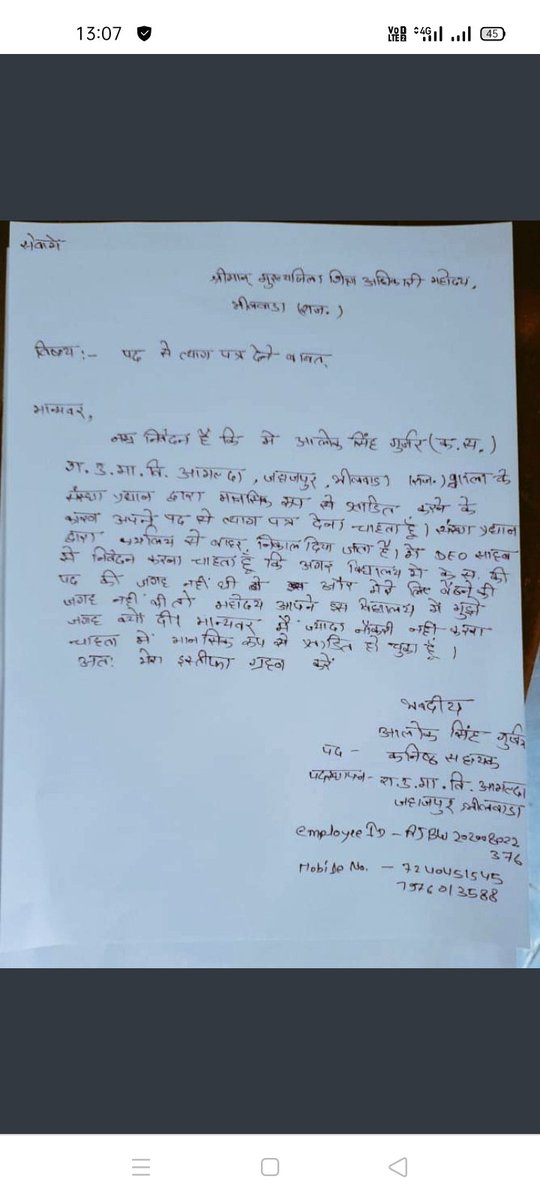 13:07
VoD LTE2 4G 45
सेवामें
श्रीमान् मुख्यजिला शिक्षा अधिकारी महोदय,
भीलवाडा (राज.)
विषय:- पद से त्याग पत्र देने बाबत,
मान्यवर,
नम्र निवेदन है कि मे आलोक सिंह गुर्जर (क.स.)
रा.उ.मा.वि. आमल्दा, जहाजपुर, भीलवाडा (राज.) के
संस्था प्रधान द्वारा मानसिक रूप से प्रताडित करने के
कारण अपने पद से त्याग पत्र देना चाहता हूं। संस्था प्रधान
द्वारा कार्यालय से बाहर निकाल दिया जाता है। मे DEO साहब
से निवेदन करना चाहता हूं कि अगर विद्यालय मे क.स. की
पद की जगह नहीं थी और मेरे लिए बैठने की
जगह नहीं थी तो महोदय आपने इस विद्यालय मे मुझे
जगह क्यों दी। मान्यवर मैं ज्यादा नौकरी नही करना
चाहता मे मानसिक रूप से प्रताडित हो चुका हूं।
अतः मेरा इस्तीफा ग्रहण करें
भवदीय
आलोक सिंह गुर्जर
पद - कनिष्ठ सहायक
पदस्थापन- रा.उ.मा.वि. आमल्दा
जहाजपुर भीलवाडा
employee ID - RJBW 202008022
376
Mobile No. - 7240451545
7976013588